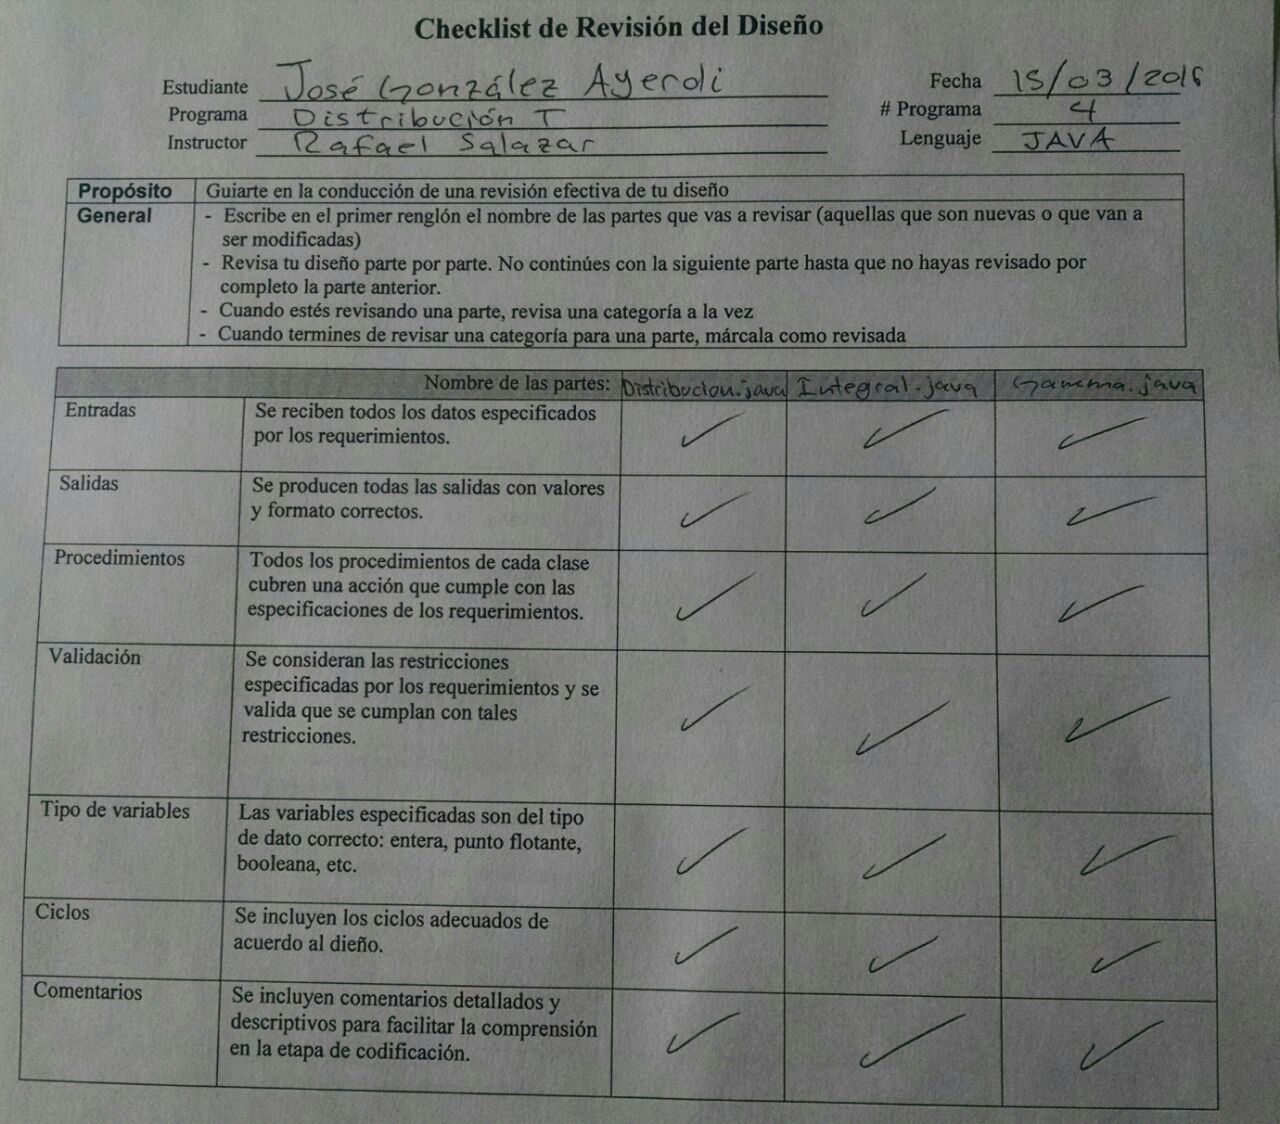 Checklist de Revisión del Diseño
Estudiante José González Ayerdi
Fecha 15/03/2016
Programa Distribución T
# Programa 4
Instructor Rafael Salazar
Lenguaje JAVA
Propósito Guiarte en la conducción de una revisión efectiva de tu diseño
General - Escribe en el primer renglón el nombre de las partes que vas a revisar (aquellas que son nuevas o que van a
ser modificadas)
- Revisa tu diseño parte por parte. No continúes con la siguiente parte hasta que no hayas revisado por
completo la parte anterior.
- Cuando estés revisando una parte, revisa una categoría a la vez
- Cuando termines de revisar una categoría para una parte, márcala como revisada
Nombre de las partes: Distribucion.java Integral.java Gamma.java
Entradas Se reciben todos los datos especificados
por los requerimientos.
✓ ✓ ✓
Salidas Se producen todas las salidas con valores
y formato correctos.
✓ ✓ ✓
Procedimientos Todos los procedimientos de cada clase
cubren una acción que cumple con las
especificaciones de los requerimientos.
✓ ✓ ✓
Validación Se consideran las restricciones
especificadas por los requerimientos y se
valida que se cumplan con tales
restricciones.
✓ ✓ ✓
Tipo de variables Las variables especificadas son del tipo
de dato correcto: entera, punto flotante,
booleana, etc.
✓ ✓ ✓
Ciclos Se incluyen los ciclos adecuados de
acuerdo al dieño.
✓ ✓ ✓
Comentarios Se incluyen comentarios detallados y
descriptivos para facilitar la comprensión
en la etapa de codificación.
✓ ✓ ✓